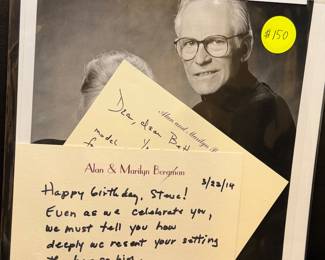 $150
Alan and Marilyn
Dear, dear
model
Alan & Marilyn Bergman
3/22/14
Happy birthday, Steve!
Even as we celebrate you,
we must tell you how
deeply we resent your setting
the